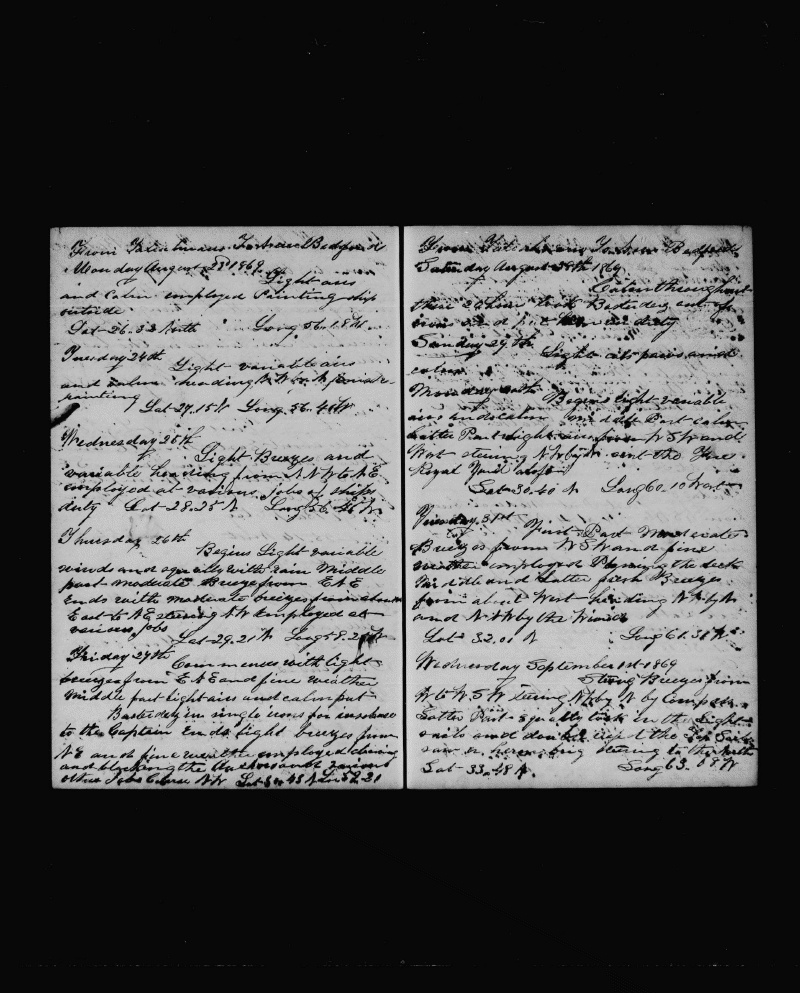 From Talcahuano Towards Bedford
Monday August 23d 1869
Light airs
and Calm employed Painting ship
outside
Lat 26.32 North Long 56.18 W.
Tuesday 24th
Light variable airs
and calm heading N.W. to N.
painting
Lat 27.15 N Long 56.41 W
Wednesday 25th
Light Breezes and
variable heading from N N W to N E
employed at various Jobs of ships
duty Lat 28.25 N Long 56.46 W
Thursday 26th
Begins Light variable
winds and squally with rain Middle
part moderate Breeze from E N E
Ends with moderate breezes from about
East to N E steering N W Employed at
various jobs
Lat 29.21 N Long 58.
Friday 27th
Commences with light
breezes from E N E and fine weather
Middle part light airs and calm put
in single irons for insolence
to the Captain Ends light breezes from
N E and fine weather employed
and blacking the Anchors and various
other Jobs Course N W Lat 30.43 N Lon 59.21
From Towards Bedford
Saturday August 28th 1869
Calm throughout
these 24 hours took out of
irons and put him on duty
Sunday 29th
Light cats paws and
calm
Monday 30th
Begins light variable
airs and calm Middle Part calm
Latter Part light airs from W S W and
West steering N W by N sent the Fore
Royal Yard aloft
Lat 30.40 N Long 60.10 West
Tuesday 31st
First Part Moderate
Breezes from W S W and fine
weather employed the deck
Middle and Latter fresh Breezes
from about West heading N by W
and N N W by the Wind
Lat 32.01 N Long 61.38 W
Wednesday September 1st 1869
Strong Breezes from
W to W S W steering N by W by compass
Latter Part squally took in the Light
sails and double the Top Sails
sea heading to the North
Lat 33.48 N. Long 63.08 W